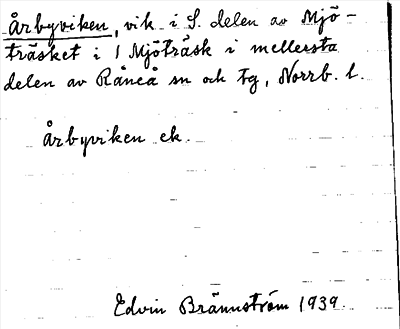 Årbyviken, vik i S. delen av Mjö-
träsket i 1 Mjöträsk i mellersta
delen av Råneå sn och tg, Norrb. l.
Årbyviken ek.
Edvin Brännström 1939.